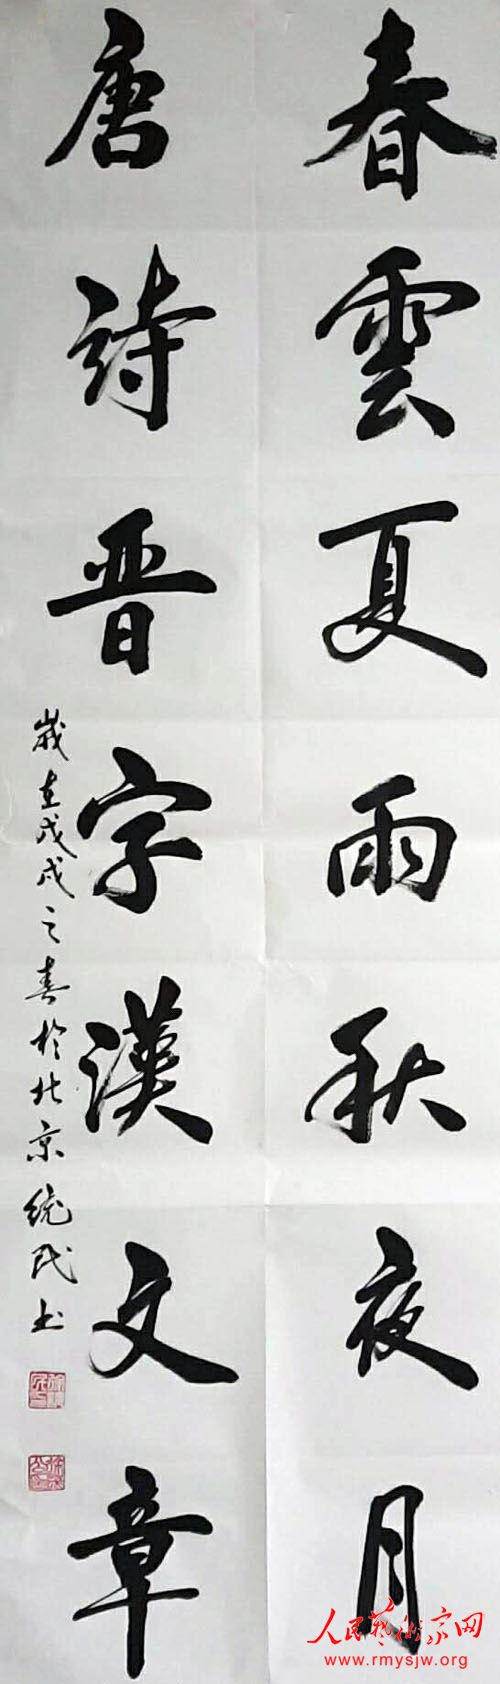 春雲夏雨秋夜月
唐詩晋字漢文章
歲在戊戌之春於北京統民书
人民藝術家网
www.rmysjw.org